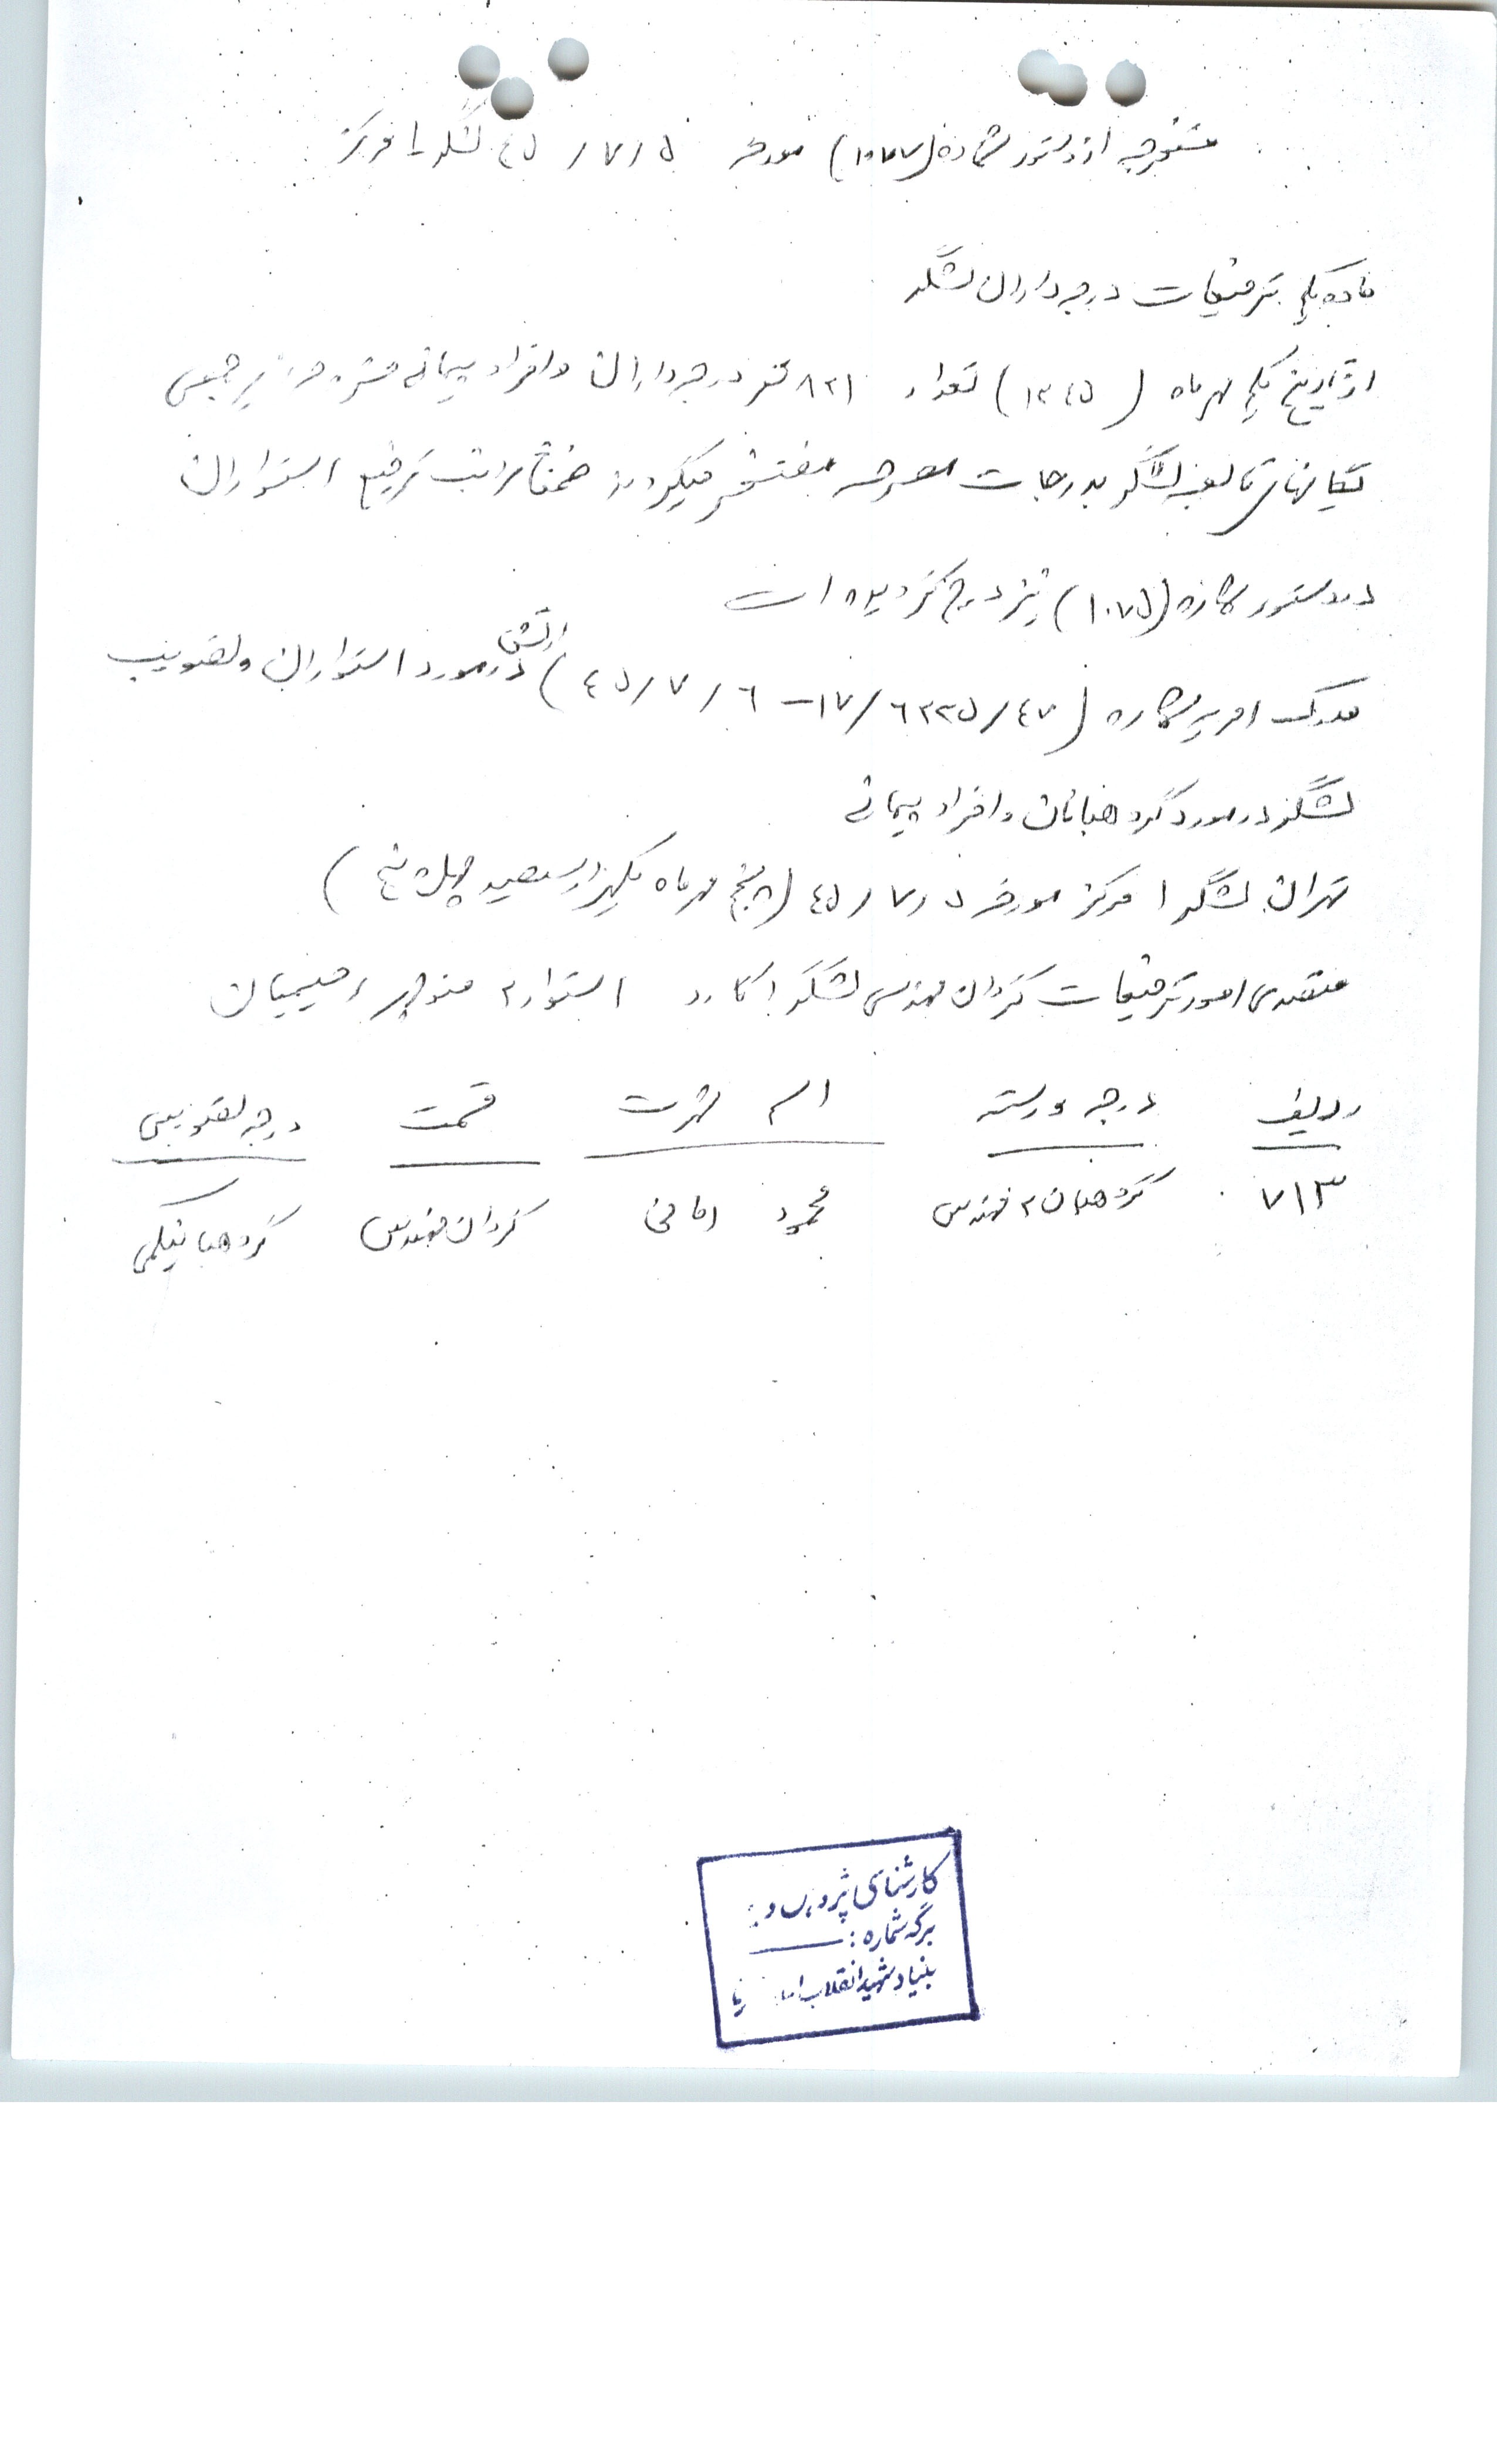 مستخرجه از دستور شماره (۱۰۷۷) مورخه ۵ / ۷ / ٤۵ لشگر ۱ مرکز
ماده یکم ترفیعات درجه داران لشگر
از تاریخ یکم مهرماه (۱۳٤۵) تعداد ۸۲۱ نفر درجه داران و افراد پیمانی مشروحه زیر جمعی
یگانهای تابعه لشگر بدرجات معروضه مفتخر میگردند ضمنا مراتب ترفیع استواران
در دستور شماره (۱۰۷۵) نیز درج گردیده است
مدرک امریه شماره (٤۷ / ٦۲۲۵ / ۱۷ – ٦ / ۷ / ٤۵) ارتش در مورد استواران و تصویب
لشگر در مورد گروهبانان و افراد پیمانی
تهران لشگر ۱ مرکز مورخه ۵ / ۷ / ٤۵ (پنجم مهرماه یکهزار سیصد چهل و پنج)
متصدی امور ترفیعات گردان مهندس لشگر ۱ گارد استوار ۲ منوچهر رحیمیان
ردیف درجه و رسته اسم شهرت قسمت درجه تصویبی
۷۱۳ گروهبان ۲ مهندس محمود امامی گردان مهندس گروهبان یکمی
کارشناسی پژوهش و
برگ شماره :
بنیاد شهید انقلاب